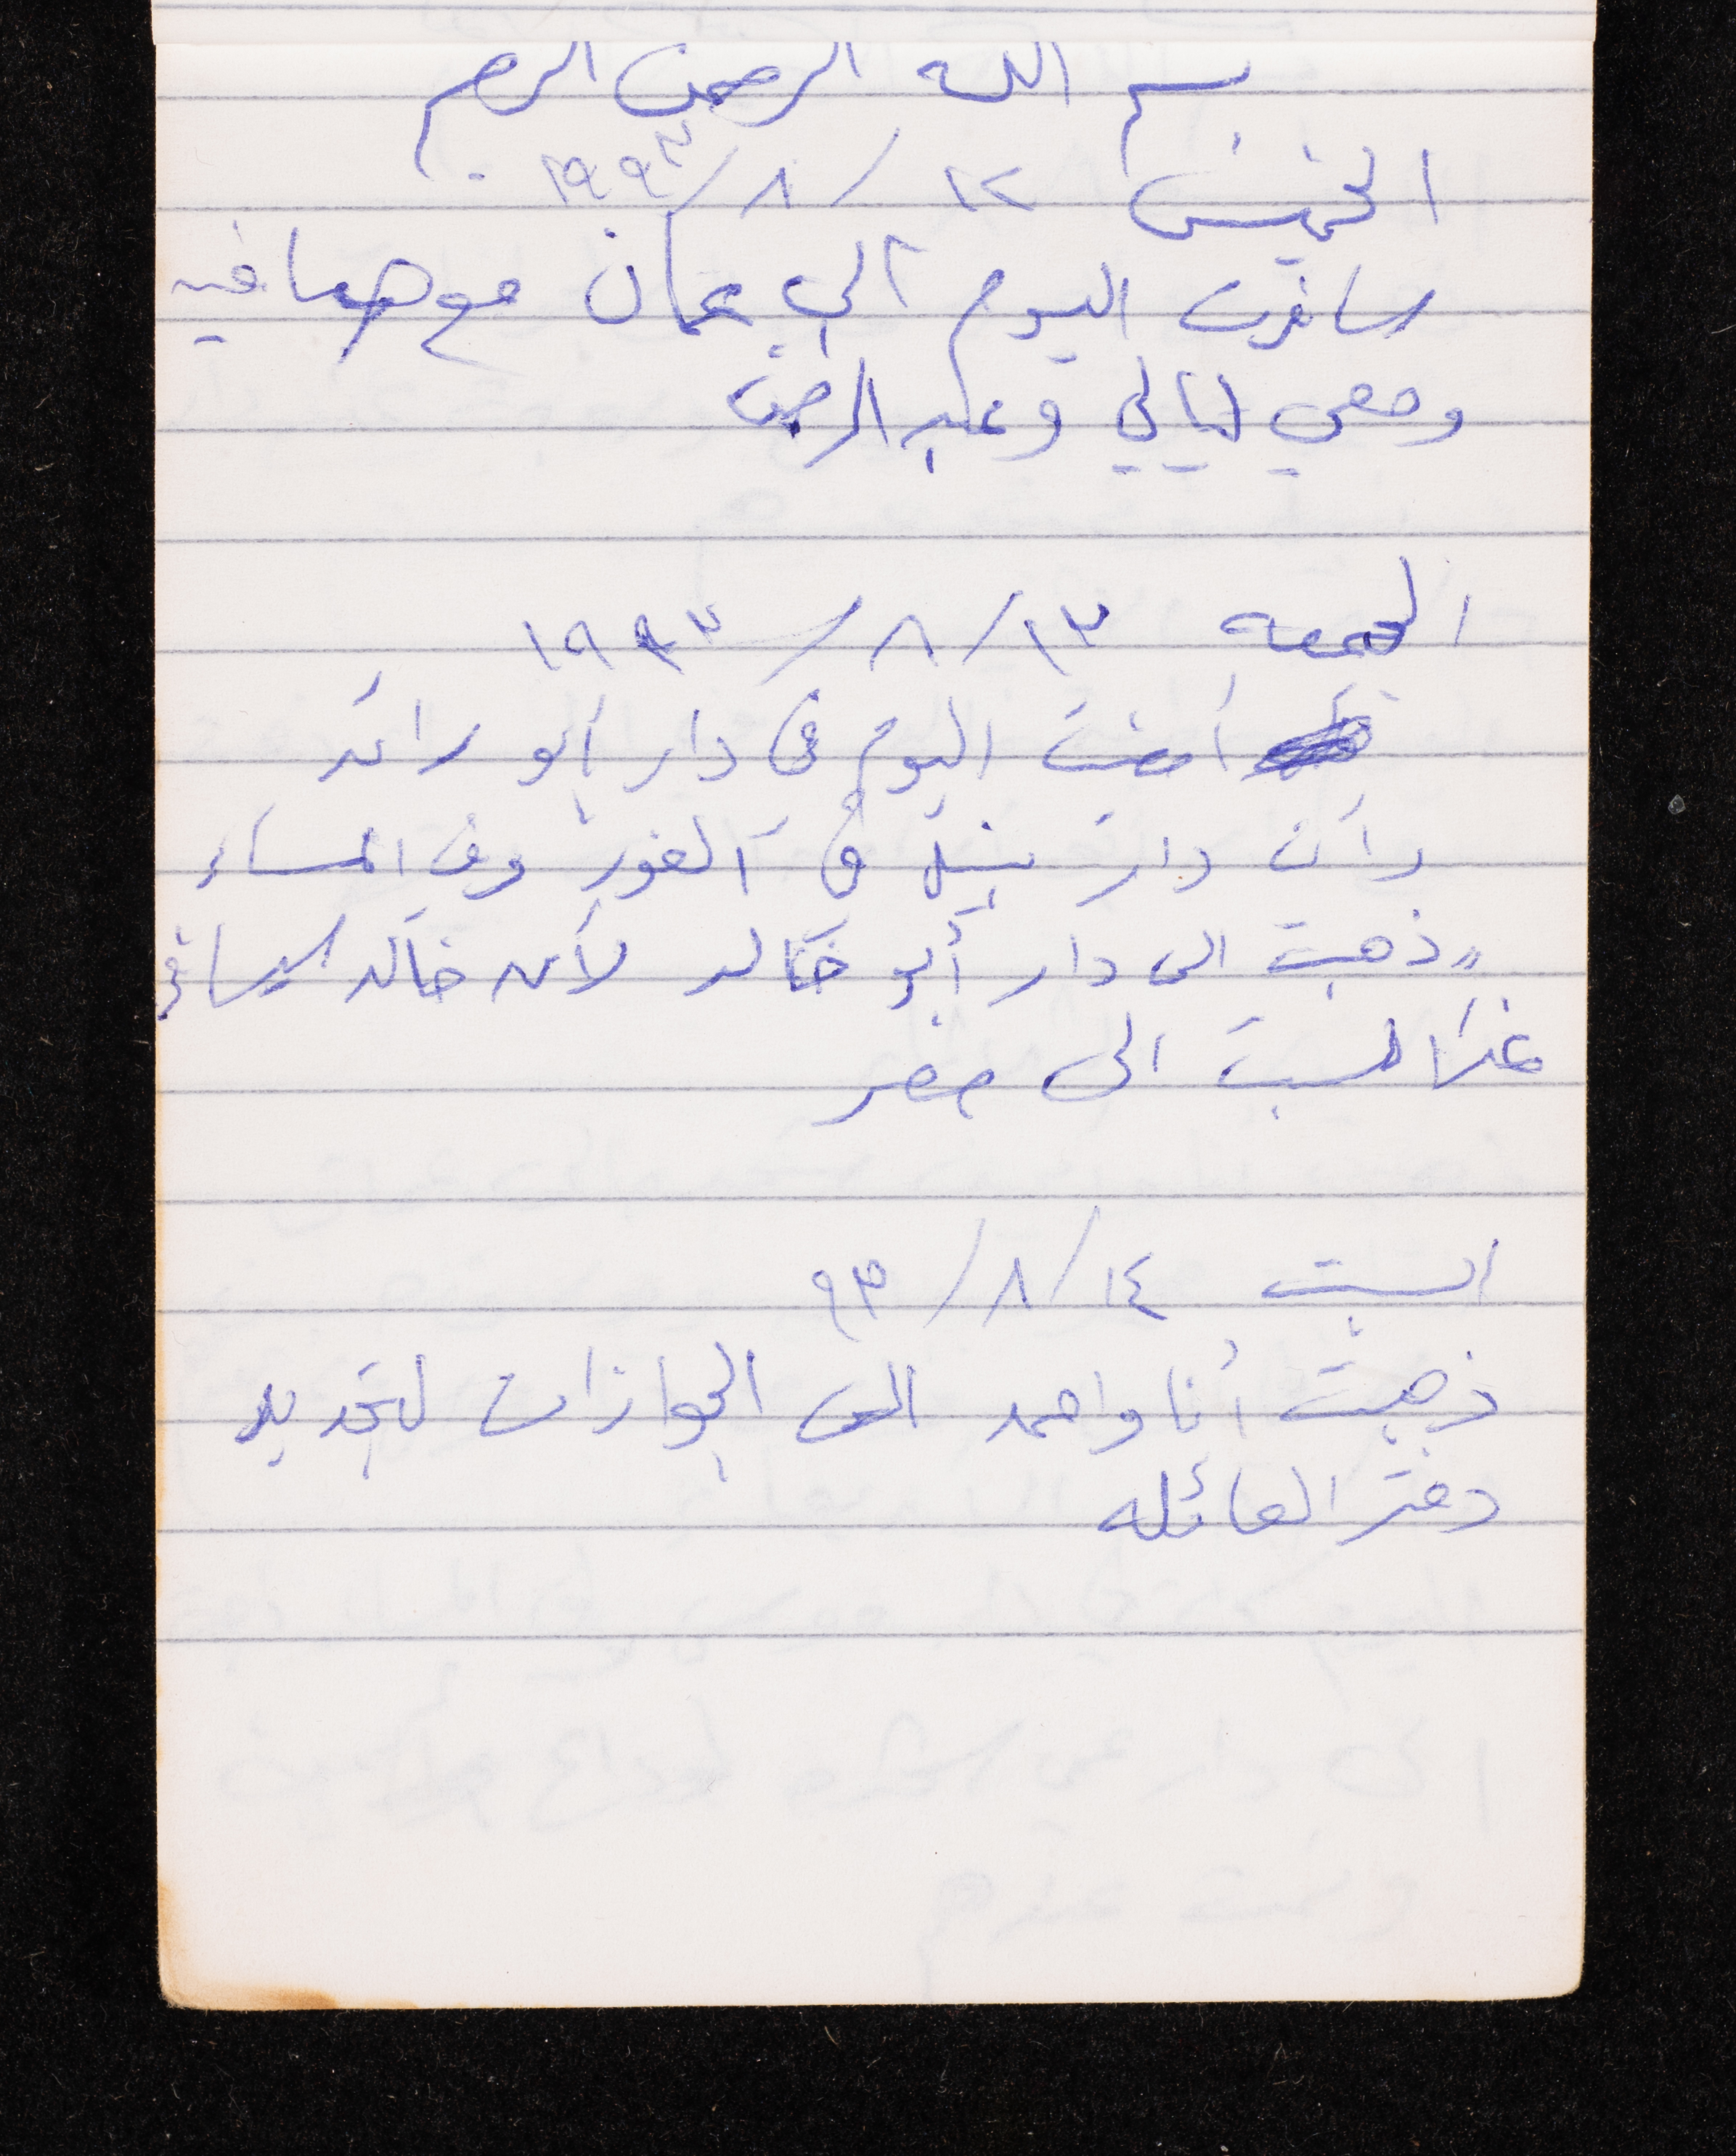 بسم الله الرحمن الرحيم
الخميس ١٢ / ٨ / ١٩٩٣
سافرت اليوم الى عمان مع صافيه
ومعي ليالي وعبد الرحمن
الجمعه ١٣ / ٨ / ١٩٩٣
أمضيت اليوم في دار أبو رائد
دار نبيل في الغور وفي المساء
ذهبت الى دار أبو خالد لأن خالد سيسافر
غدا السبت الى مصر
السبت ١٤ / ٨ / ٩٣
ذهبت أنا واحمد الى الجوازات لتجديد
دفتر العائله